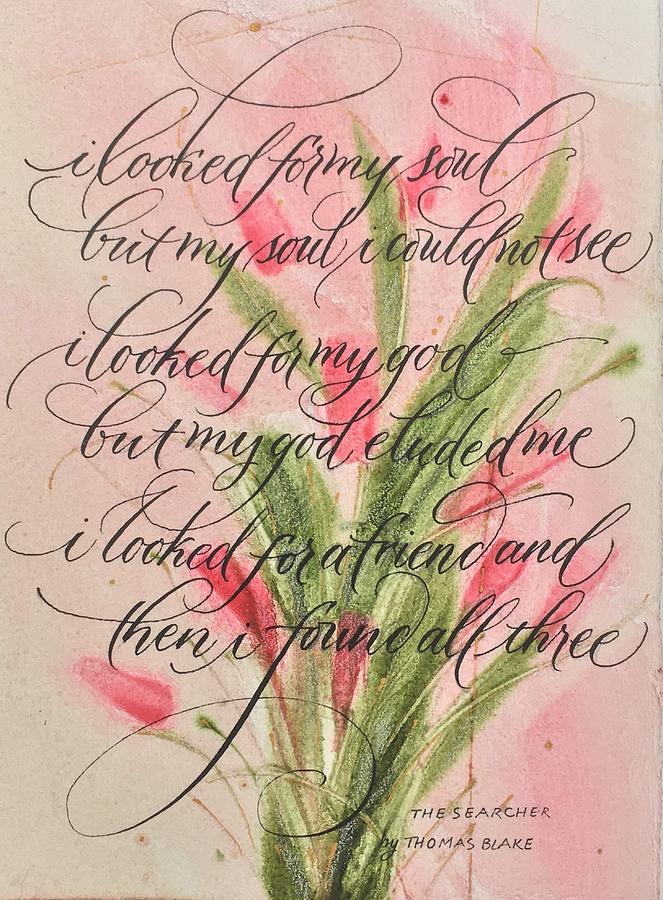 i looked for my soul
but my soul i could not see
i looked for my god
but my god eluded me
i looked for a friend and
then i found all three
THE SEARCHER
by THOMAS BLAKE